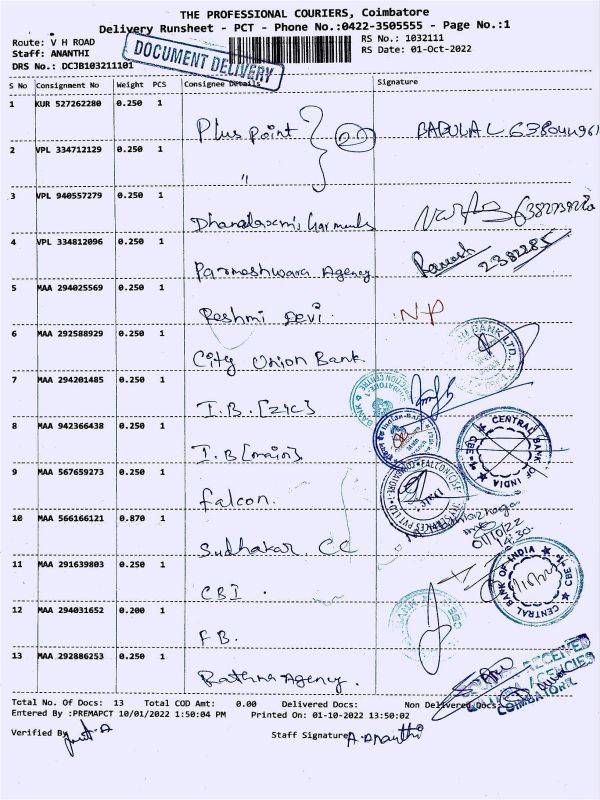 THE PROFESSIONAL COURIERS, Coimbatore
Delivery Runsheet - PCT - Phone No.:0422-3505555 - Page No.:1
Route: V H ROAD
RS No.: 1032111
Staff: ANANTHI
RS Date: 01-Oct-2022
DRS No.: DCJB103211101
DOCUMENT DELIVERY
S No Consignment No Weight PCS Consignee Details Signature
1 KUR 527262280 0.250 1
Plus Point
2 VPL 334712129 0.250 1
"
3 VPL 940557279 0.250 1
Dhanalaxmi
4 VPL 334812096 0.250 1
Parmeshwara Agency Ramesh
5 MAA 294025569 0.250 1
Reshmi Devi. NP
6 MAA 292588929 0.250 1
City Union Bank BANK LTD.
7 MAA 294201485 0.250 1
I.B.
8 MAA 942366438 0.250 1
I.B [main] CENTRAL BANK OF INDIA
9 MAA 567659273 0.250 1
falcon. FALCON
10 MAA 566166121 0.870 1
Sudhakar CC 01/10/22
14:30
11 MAA 291639803 0.250 1
CBI. CENTRAL BANK OF INDIA CBE-1
12 MAA 294031652 0.200 1
F B.
13 MAA 292886253 0.250 1
Rathna Agency. RECEIVED
AGENCIES
COIMBATORE
Total No. Of Docs: 13 Total COD Amt: 0.00 Delivered Docs: Non Delivered Docs:
Entered By :PREMAPCT 10/01/2022 1:50:04 PM Printed On: 01-10-2022 13:50:02
Verified By Staff Signature A. Ananthi